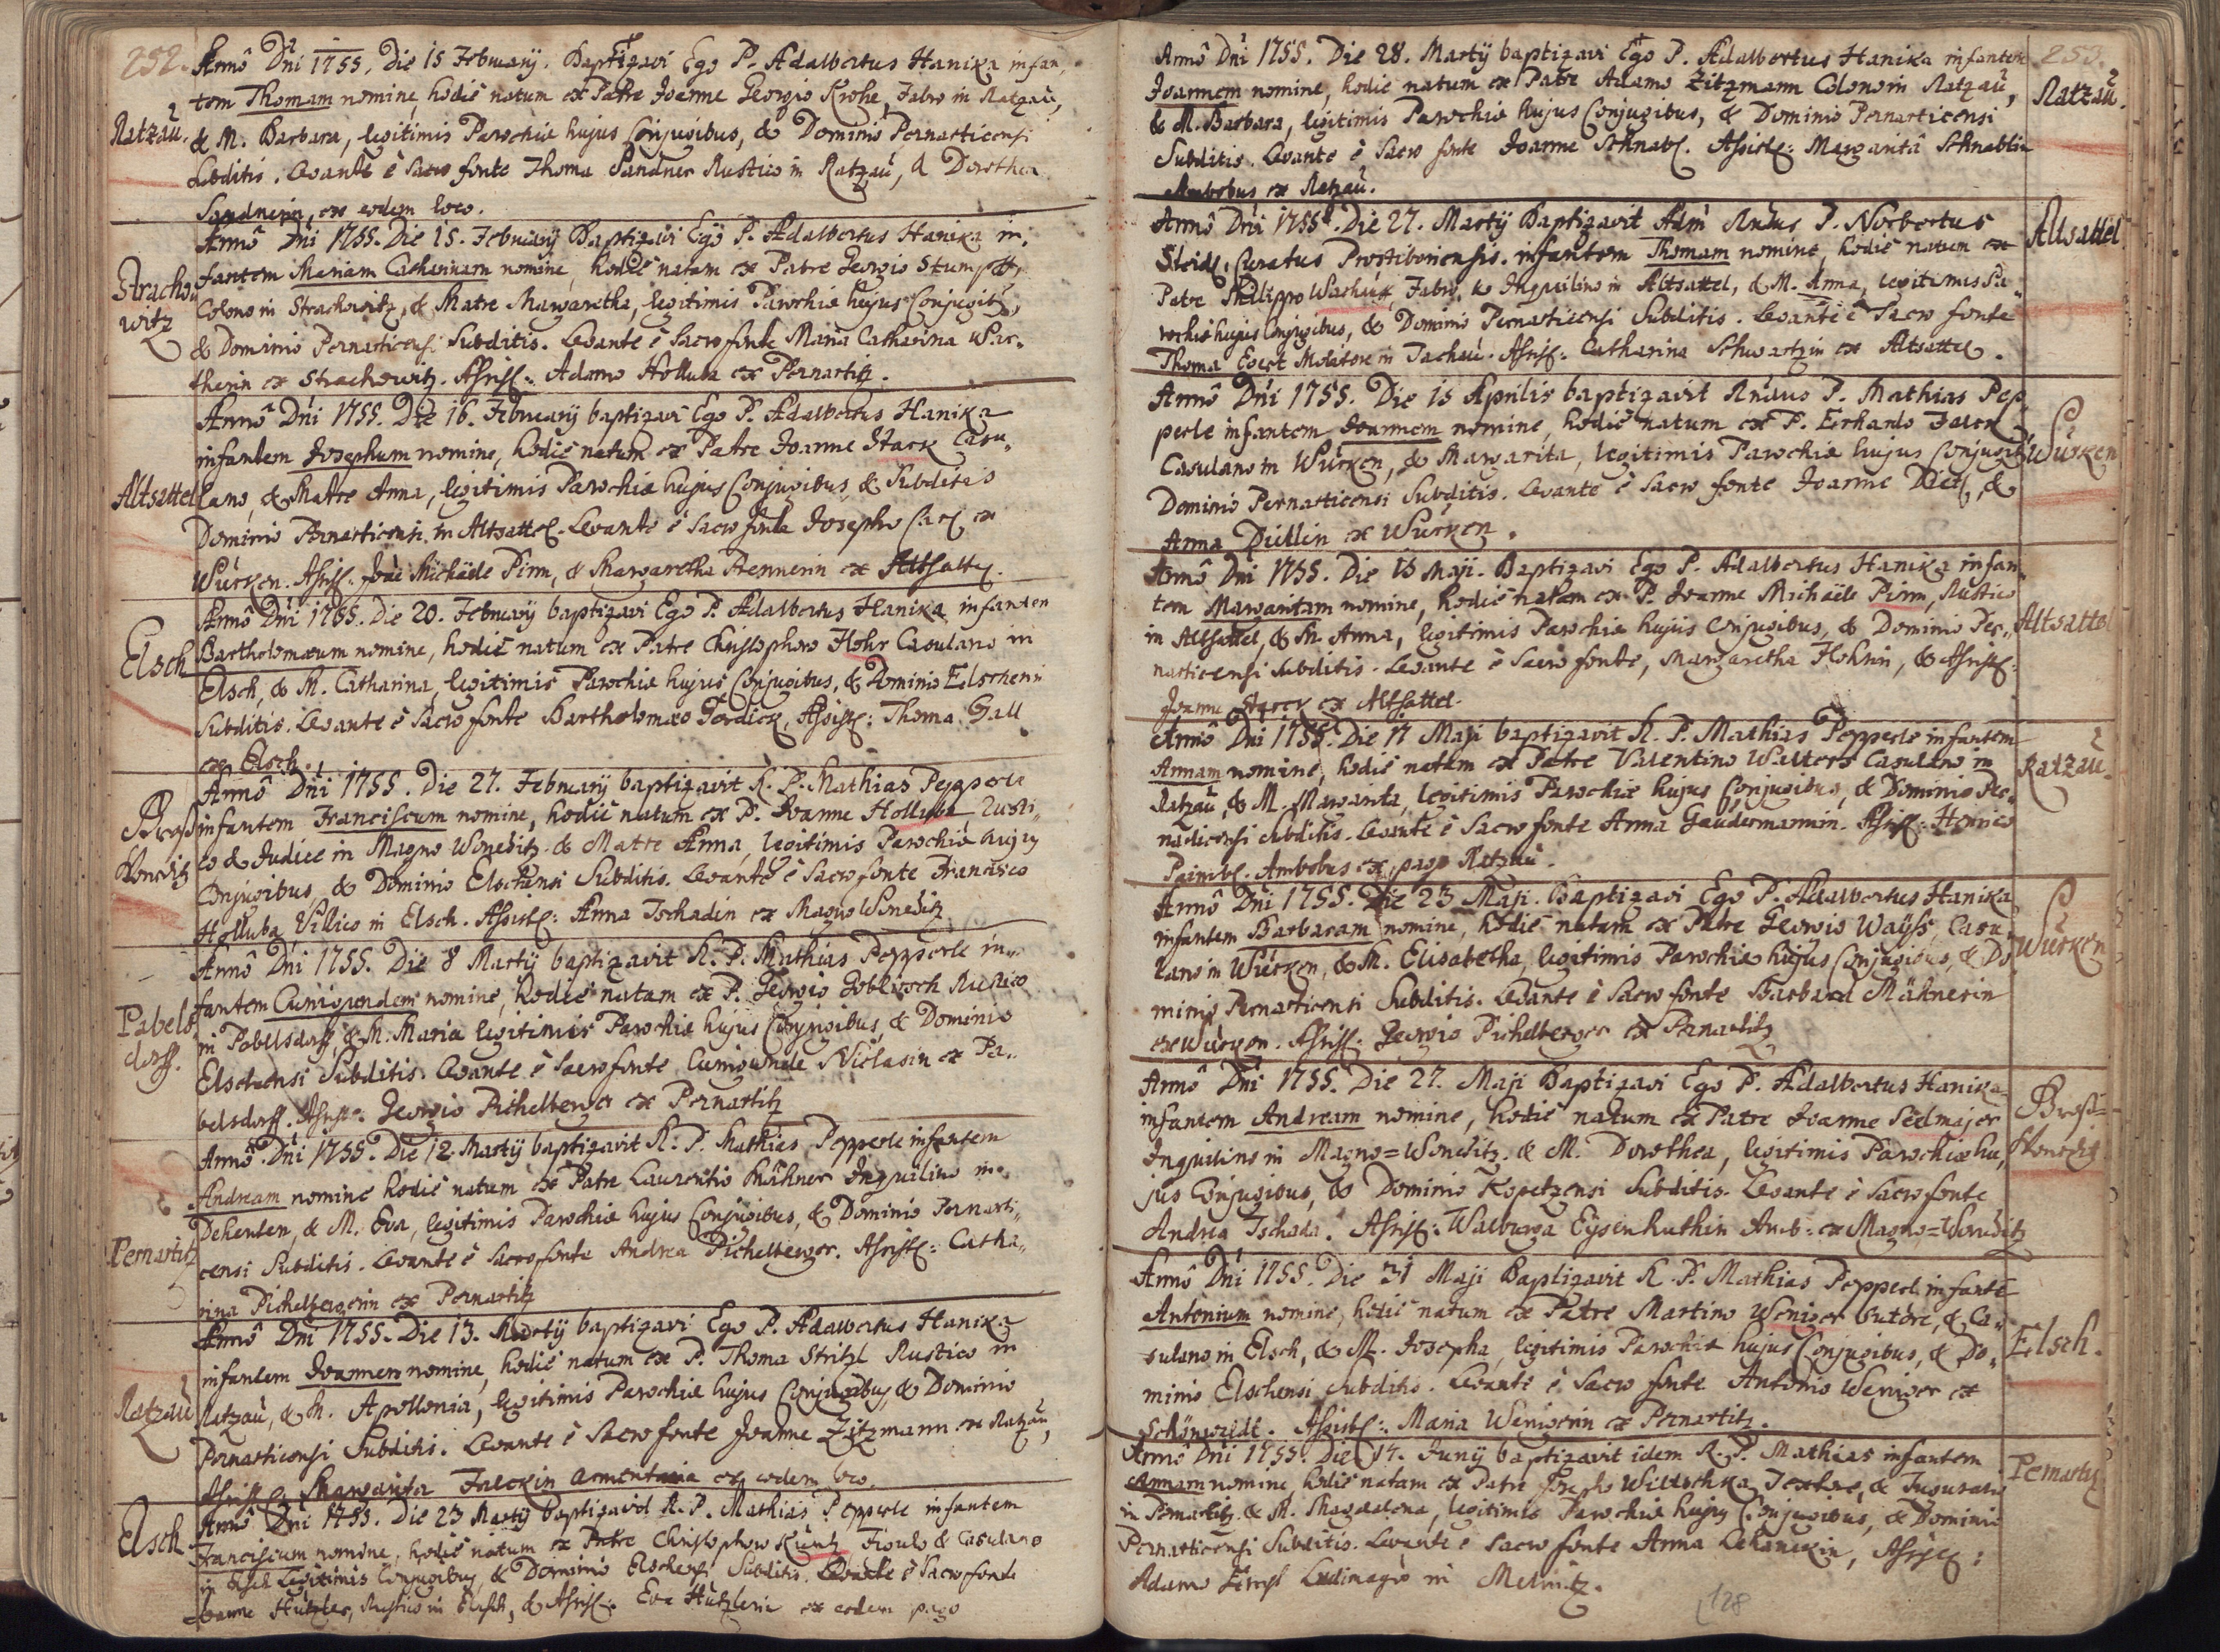 252.
Annô Dni 1755. Die 15 Februarij. Baptizavi Ego P. Adalbertus Hanika infan,
tem Thomam nomine, hodie natum ex Patre Joanne Georgio Krohe, Fabro in Ratzau,
Ratzau.
& M. Barbara, legitimis Parochiæ hujus Conjugibus, & Dominio Pernarticensi
Subditis. Levante è Sacro fonte Thoma Sandner Rustico in Ratzau, & Dorothea
Sandnerin, ex eodem loco.
Annô Dni 1755. Die 15. Februarij Baptizavi Ego P. Adalbertus Hanika in,
Strachowitz
fantem Mariam Catharinam nomine, hodie natam ex Patre Georgio Stumpf,
Colono in Strachowitz, & Matre Margaretha, legitimis Parochiæ hujus Conjugib,
& Dominio Pernarticensi Subditis. Levante è Sacro fonte Maria Catharina
therin ex Strachowitz. Assist: Adamo Holluba ex Pernartitz.
Annô Dni 1755. Die 16. Februarij baptizavi Ego P. Adalbertus Hanika
infantem Josephum nomine, hodie natum ex Patre Joanne Stark Casu,,
Altsattel
lano, & Matre Anna, legitimis Parochiæ hujus Conjugibus, & Subditis
Dominio Pernarticensi in Altsattel. Levante è Sacro fonte Josepho ex
Würken. Assist: Joãe Michaele Pirm, & Margaretha Rennerin ex Altsattel.
Annô Dni 1755. Die 20. Februarij baptizavi Ego P. Adalbertus Hanika infantem
Elsch
Bartholomæum nomine, hodie natum ex Patre Christophoro Hohr Casulano in
Elsch, & M. Catharina, legitimis Parochiæ hujus Conjugibus, & Dominio Elschensi
Subditis. Levante è Sacro fonte Bartholomæo Assist: Thoma Gall
ex Elsch.
Annô Dni 1755. Die 27. Februarij baptizavit R. P. Mathias Pepperle
Groß Wonetitz
infantem Franciscum nomine, hodie natum ex P. Joanne Holluba Rusti,
co & Judice in Magno Wonetitz & Matre Anna, legitimis Parochiæ hujus
Conjugibus, & Dominio Elschensi Subditis. Levante è Sacro fonte Francisco
Holluba Villico in Elsch. Assist: Anna Tschadin ex Magno Wonetitz
Annô Dni 1755. Die 8 Martij baptizavit R. P. Mathias Pepperle in,,
Pabelsdorff.
fantem Cunigundem nomine, hodie natam ex P. Georgio Goblitsch Rustico
in Pabelsdorff, & M. Maria legitimis Parochiæ hujus Conjugibus & Dominio
Elschensi Subditis. Levante è Sacro fonte Cunigunde Niclasin ex Pa,,
belsdorff. Assist: Georgio Pichelberger ex Pernartitz
Annô Dni 1755. Die 12. Martij baptizavit R. P. Mathias Pepperle infantem
Andream nomine hodie natum ex Patre Laurentio Mähner Inquilino in
Dehenten, & M. Eva, legitimis Parochiæ hujus Conjugibus, & Dominio Pernarti,,
Pernartitz
censi Subditis. Levante è Sacro fonte Andrea Pichelberger. Assist: Catha,,
rina Pichelbergerin ex Pernartitz
Annô Dni 1755. Die 13. Martij baptizavi Ego P. Adalbertus Hanika
infantem Joannem nomine, hodie natum ex P. Thoma Stritzl Rustico in
Ratzau
Ratzau, & M. Apollonia, legitimis Parochiæ hujus Conjugibus, & Dominio
Pernarticensi Subditis. Levante è Sacro fonte Joanne Zitzmann ex Ratzau,
Assist: Margarita Falckin armentaria ex eodem loco.
Annô Dni 1755. Die 23 Martij baptizavit R. P. Mathias Pepperle infantem
Elsch
Franciscum nomine, hodie natum ex Patre Christophoro Kuntz Figulo & Casulano
in Elsch legitimis Conjugibus, & Dominio Elschensi Subditis. Levante è Sacro fonte
Joanne Hützler, Rustico in Elsch, & Assist: Eva Hützlerin ex eodem pago
253.
Annô Dni 1755. Die 28. Martij baptizavi Ego P. Adalbertus Hanika infantem
Ratzau.
Joannem nomine, hodie natum ex Patre Adamo Zitzmann Colono in Ratzau,
& M. Barbara, legitimis Parochiæ hujus Conjugibus, & Dominio Pernarticensi
Subditis. Levante è Sacro fonte Joanne Schnabl. Assist: Margaritâ Schnablin
Ambobus ex Ratzau.
Annô Dni 1755. Die 27. Martij Baptizavit Adm Rndus P. Norbertus
Altsattel
Curatus infantem Thomam nomine, hodie natum ex
Patre Philippo Fabro, & Inquilino in Altsattel, & M. Anna, legitimis Pa,,
rochiæ hujus Conjugibus, & Dominio Pernarticensi Subditis. Levante è Sacro fonte
Thoma Evert Molitore in Tachau. Assist: Catharina Schwartzin ex Altsattel.
Annô Dni 1755. Die 15 Aprilis baptizavit Rndus P. Mathias Pep,
perle infantem Joannem nomine, hodie natum ex P. Erhardo
Würken
Casulano in Würken, & Margarita, legitimis Parochiæ hujus Conjugib
Dominio Pernarticensi Subditis. Levante è Sacro fonte Joanne Dietl, &
Anna Düllin ex Würken.
Annô Dni 1755. Die 15 Maji. Baptizavi Ego P. Adalbertus Hanika infan,
tem Margaritam nomine, hodie natam ex P. Joanne Michaele Pirm, Rustico
Altsattel
in Altsattel, & M. Anna, legitimis Parochiæ hujus Conjugibus, & Dominio Per,,
narticensi Subditis. Levante è Sacro fonte, Margaretha Hohrin, & Assist:
Joanne Starck ex Altsattel.
Annô Dni 1755. Die 17 Maji baptizavit R. P. Mathias Pepperle infantem
Ratzau.
Annam nomine, hodie natam ex Patre Valentino Walters Casulano in
Ratzau, & M. Margarita, legitimis Parochiæ hujus Conjugibus, & Dominio Per,,
narticensi Subditis. Levante è Sacro fonte Anna Gaudermannin. Assist: Henrico
Paimbl. Ambobus ex pago Ratzau.
Annô Dni 1755. Die 23 Maji. Baptizavi Ego P. Adalbertus Hanika
infantem Barbaram nomine, hodie natam ex Patre Georgio Wayß, Casu,
Würken
lano in Würken, & M. Elisabetha, legitimis Parochiæ hujus Conjugibus, & Do
minio Pernarticensi Subditis. Levante è Sacro fonte Barbara Mähnerin
ex Würken. Assist: Georgio Pichelberger ex Pernartitz
Annô Dni 1755. Die 27. Maji Baptizavi Ego P. Adalbertus Hanika
Groß=Wonetitz
infantem Andream nomine, hodie natum ex Patre Joanne Seelmajer
Inquilino in Magno=Wonetitz. & M. Dorothea, legitimis Parochiæ hu,
jus Conjugibus, & Dominio Kopetzensi Subditis. Levante è Sacro fonte
Andrea Tschada. Assist: Walburga Eysenhuthin Amb: ex Magno=Wonetitz
Annô Dni 1755. Die 31 Maji Baptizavit R. P. Mathias Pepperl infantē
Antonium nomine, hodie natum ex Patre Martino Weniger Sutore, & Ca,,
Elsch.
sulano in Elsch, & M. Josepha, legitimis Parochiæ hujus Conjugibus, & Do,,
minio Elschensi Subditis. Levante è Sacro fonte Antonio Weniger ex
Schönwaldt. Assist: Maria Wenigerin ex Pernartitz.
Annô Dni 1755. Die 14. Junij baptizavit idem R. P. Mathias infantem
Pernartitz
Annam nomine, hodie natam ex Patre Josepho Textore, &
in Pernartitz & M. Magdalena, legitimis Parochiæ hujus Conjugibus, & Dominio
Pernarticensi Subditis. Levante è Sacro fonte Anna Assist:
Adamo Ludimagro in
128